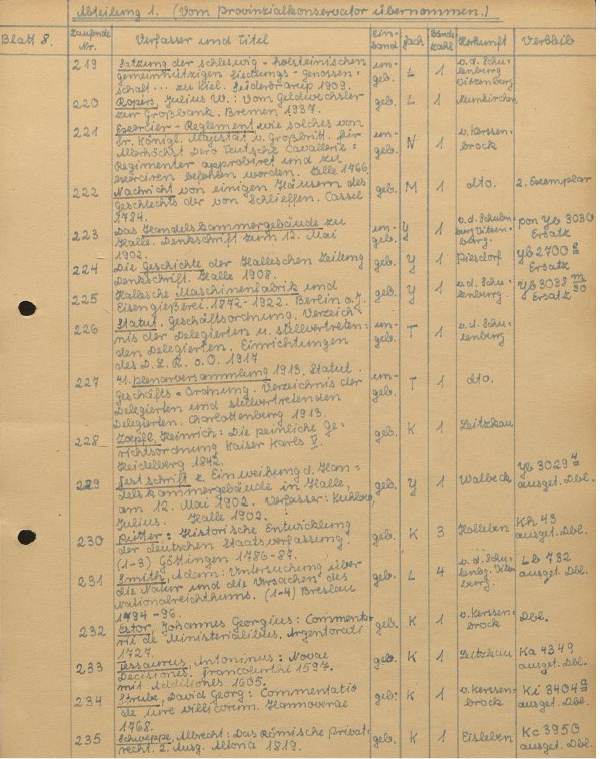 Abteilung 1. (Vom Provinzialkonservator übernommen.)
Blatt 8. Laufende Nr. Verfasser und Titel Einband Fach Bändezahl Herkunft Verbleib
219 Satzung der schleswig-holsteinischen gemeinnützigen Siedlungs-Genossenschaft... zu Kiel. 1909. ungeb. L 1 v.d. Schulenburg
220 Ropers, Julius W.: Vom Geldwechsler zur Großbank. Bremen 1937. geb. L 1 Neunkirchen
221 Exercier-Reglement wie solches von Sr. Königl. Majestät v. Großbritt. für Allerhöchst Dero Teutsche Cavallerie-Regimenter approbiret und zu exerciren befohlen worden. Zelle 1766. ungeb. N 1 v. Kerssenbrock
222 Nachricht von einigen Häusern des Geschlechts der von Schlieffen. Cassel 1784. geb. M 1 dto. 2. Exemplar
223 Das Handelskammergebäude zu Halle. Denkschrift zum 12. Mai 1902. ungeb. Y 1 v.d. Schulenburg Yb 3030 Ersatz
224 Die Geschichte der Halleschen Zeitung Denkschrift. Halle 1908. geb. Y 1 Piesdorf Yb 2700 g Ersatz
225 Hallesche Maschinenfabrik und Eisengießerei. 1872-1922. Berlin o.J. geb. Y 1 v.d. Schulenburg Yb 3038 m/30 Ersatz
226 Statut. Geschäftsordnung. Verzeichnis der Delegierten u. stellvertretenden Delegierten. Einrichtungen des D.Z.R. o.O. 1917 ungeb. T 1 v.d. Schulenburg
227 41. Plenarversammlung 1913. Statut. Geschäfts-Ordnung. Verzeichnis der Delegierten und stellvertretenden Delegierten. Charlottenburg 1913. ungeb. T 1 dto.
228 Zoepfl, Heinrich: Die peinliche Gerichtsordnung Kaiser Karls V. Heidelberg 1842. geb. K 1 Leitzkau
229 Festschrift z. Einweihung d. Handelskammergebäude in Halle, am 12. Mai 1902. Verfasser: Kuhlow, Julius. Halle 1902. geb. Y 1 Walbeck Yb 3029 4 ausget. Dbl.
230 Pütter: Historische Entwicklung der deutschen Staatsverfassung. (1-3) Göttingen 1786-87. geb. K 3 Holleben Kh 43 ausget. Dbl.
231 Smith, Adam: Untersuchung über die Natur und die Ursachen des Nationalreichthums. (1-4) Breslau 1794-96. geb. L 4 v.d. Schulenbg. Lb 732 ausget. Dbl.
232 Estor, Johannes Georgius: Commentarii de Ministerialibus. Argentorati 1727. geb. K 1 v. Kerssenbrock Dbl.
233 Tessaurus, Antoninus: Novae Decisiones. Francofurthi 1597. mit Additiones 1605. geb. K 1 Leitzkau Ka 4349 ausget. Dbl.
234 Strube, David Georg: Commentatio de iure villicorum. Hannoverae 1768. geb. K 1 v. Kerssenbrock Ki 3404 a ausget. Dbl.
235 Schweppe, Albrecht: Das Römische Privatrecht. 2. Ausg. Altona 1819. geb. K 1 Eisleben Kc 3950 ausget. Dbl.